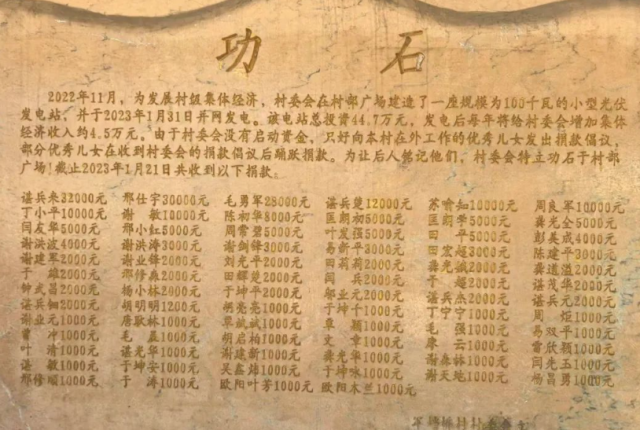 功 石
2022年11月，为发展村级集体经济，村委会在村部广场建造了一座规模为100千瓦的小型光伏
发电站，并于2023年1月31日并网发电。该电站总投资44.7万元，发电后每年将给村委会增加集体
经济收入约4.5万元。由于村委会没有启动资金，只好向本村在外工作的优秀儿女发出捐款倡议，
部分优秀儿女在收到村委会的捐款倡议后踊跃捐款。为让后人铭记他们，村委会特立功石于村部
广场！截止2023年1月21日共收到以下捐款。
谌兵来32000元 邢仕宇30000元 毛勇军28000元 谌兵楚12000元 苏喻知10000元 周良军10000元
丁小平10000元 谢敏10000元 陈初华8000元 匡朗初5000元 匡朗学5000元 龚光全5000元
闫友华5000元 邢小红5000元 周常碧5000元 叶发强5000元 田平5000元 彭美成4000元
谢洪波4000元 谢洪涛3000元 谢剑锋3000元 易新平3000元 田宏超3000元 陈建平3000元
谢建军2000元 谢业锋2000元 刘光平2000元 田莉莉2000元 龚光斌2000元 龚道溢2000元
于雄2000元 邢修典2000元 田辉楚2000元 闫兵2000元 于超2000元 谌茂华2000元
钟武昌2000元 杨小林2000元 于坤平2000元 邬业元2000元 谌兵杰2000元 谌兵元2000元
谌兵2000元 胡明明1200元 胡亮亮1000元 于坤千1000元 丁宁宁1000元 周炬1000元
谢业元1000元 唐敬林1000元 覃斌斌1000元 章颖1000元 毛强1000元 易双平1000元
曹冲1000元 毛磊1000元 胡启柏1000元 文章1000元 康云1000元 雷欣颖1000元
叶清1000元 谌光华1000元 谢建新1000元 龚光华1000元 谢森林1000元 闫光玉1000元
谌敏1000元 于坤安1000元 吴鑫炜1000元 于坤咏1000元 谢天池1000元 杨昌勇1000元
邢修顺1000元 于涛1000元 欧阳叶芳1000元 欧阳木兰1000元